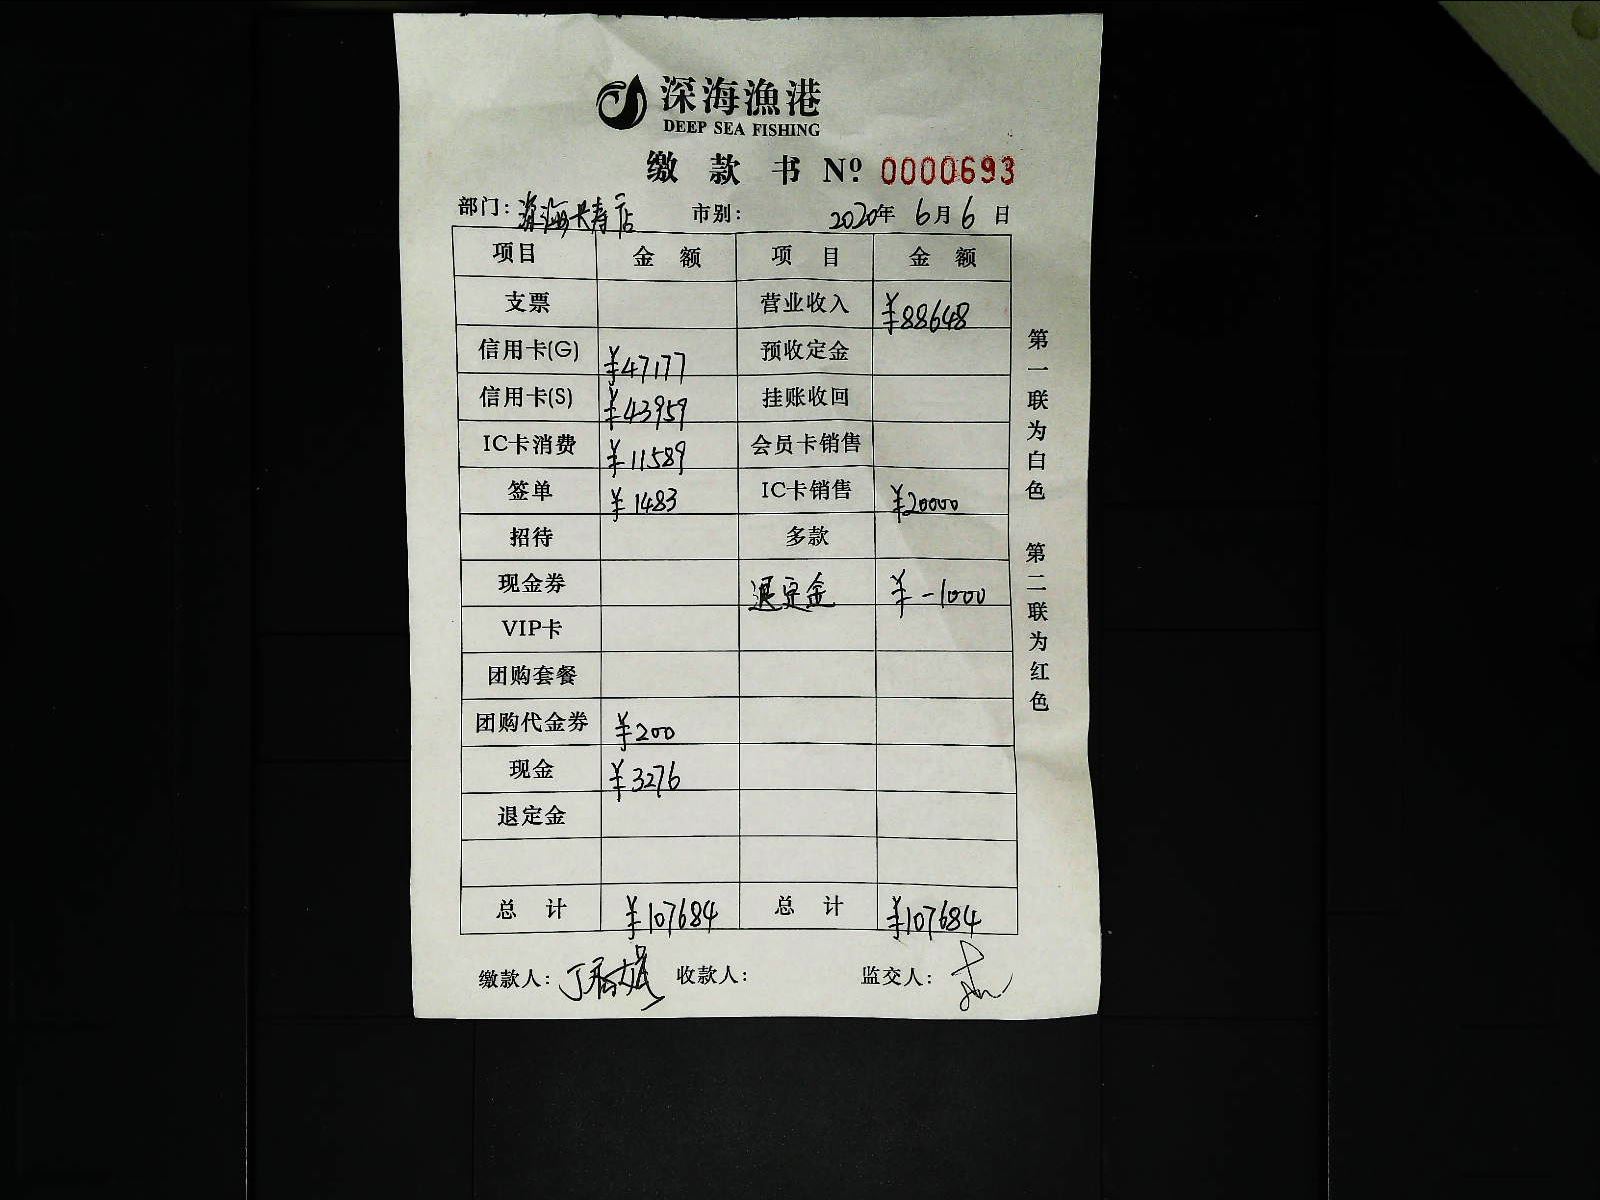 深海漁港
DEEP SEA FISHING
缴 款 书 Nº 0000693
部门: 深海长寿店 市别: 2020年 6月 6 日
项目 金 额 项 目 金 额
支票 营业收入 ¥88648
信用卡(G) ¥47177 预收定金
信用卡(S) ¥43959 挂账收回
IC卡消费 ¥11589 会员卡销售
签单 ¥1483 IC卡销售 ¥20000
招待 多款
现金券 退定金 ¥-1000
VIP卡
团购套餐
团购代金券 ¥200
现金 ¥3276
退定金
总 计 ¥107684 总 计 ¥107684
缴款人: 收款人: 监交人:
第一联为白色 第二联为红色